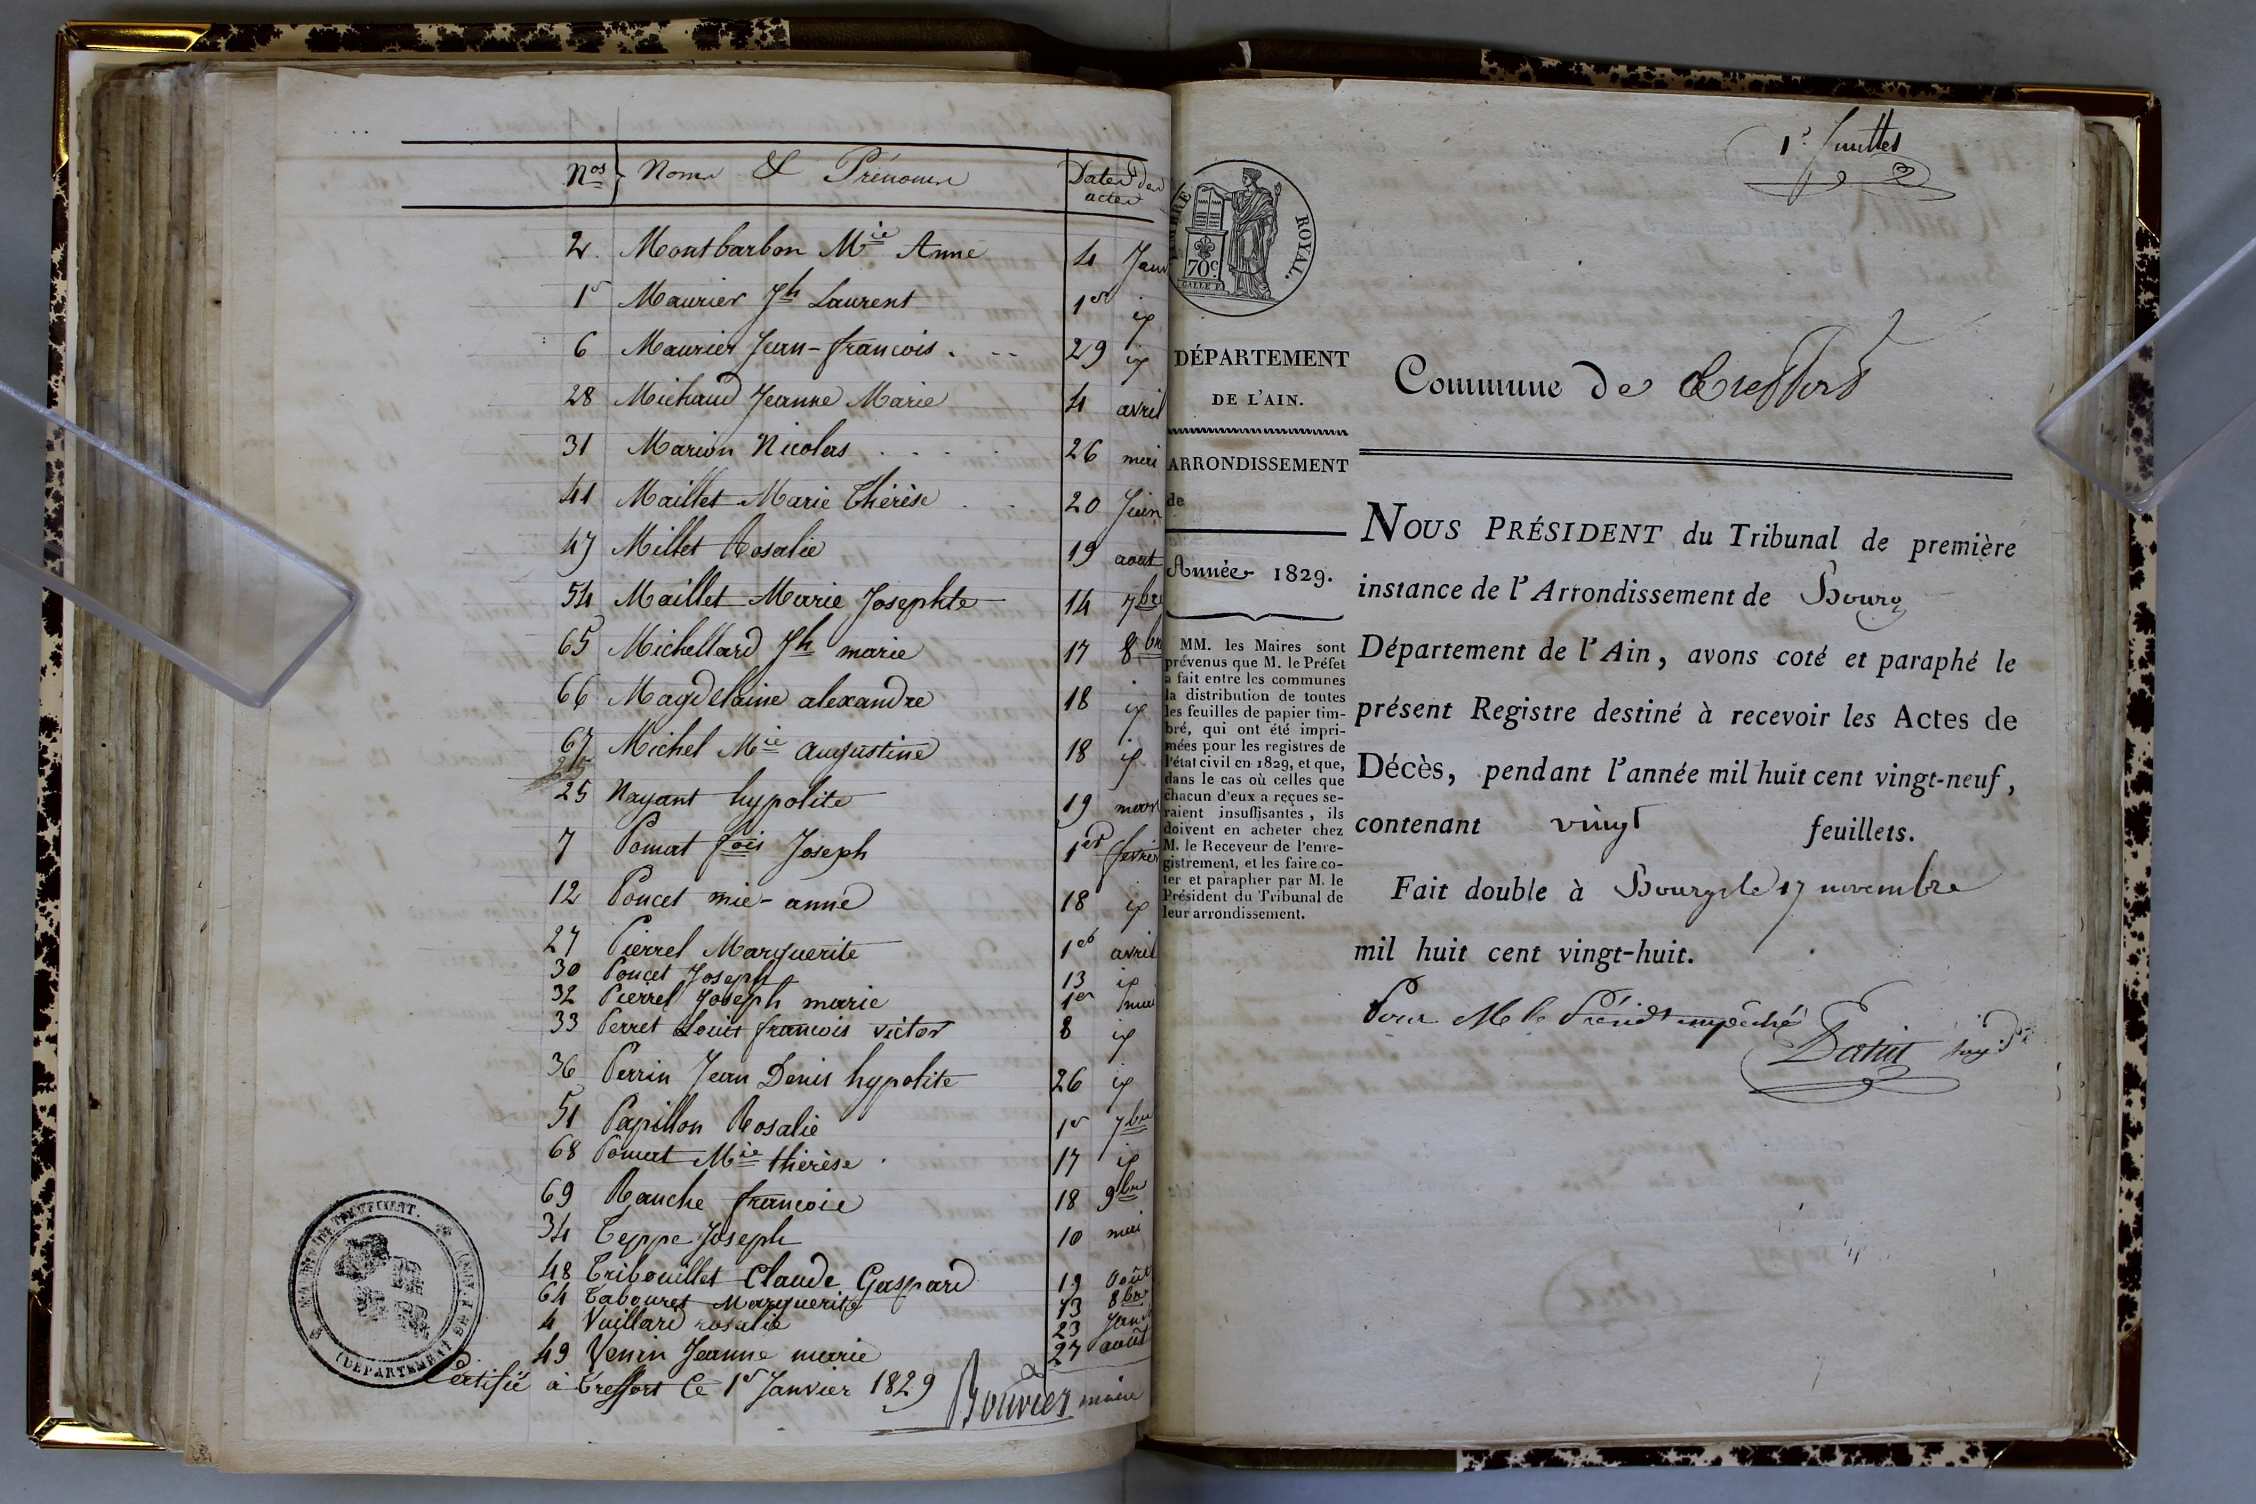 Nos Noms & Prénoms Dates des
actes
2 Montbarbon Mie Anne 4 Janv
1er Maurier Jh Laurent 1er id
6 Maurier Jean-françois 29 id
28 Michaud Jeanne Marie 4 avril
31 Marion Nicolas 26 mai
41 Maillet Marie Thérèse 20 Juin
47 Millet Rosalie 19 aout
54 Maillet Marie Josephte 14 7bre
65 Michellard Jh marie 17 8bre
66 Magdelaine alexandre 18 id
67 Michel Mie augustine 18 id
25 Nayant hypolite 19 mars
7 Pomat fois Joseph 1er fevrier
12 Poncet mie-anne 18 id
27 Pierrel Marguerite 1er avril
30 Poncet Joseph 13 id
32 Pierrel Joseph marie 1er mai
33 Perret Louis françois victor 8 id
36 Perrin Jean Denis hypolite 26 id
51 Papillon Rosalie 1er 7bre
68 Pomat Mie thérèse 17 id
69 Ranche françoise 18 9bre
34 Teppe Joseph 10 mai
48 Tribouillet Claude Gaspard 19 Août
64 Tabouret Marguerite 13 8bre
4 Vuillard rosalie 23 Janv
49 Venin Jeanne marie 27 août
Certifié à Treffort Ce 1er Janvier 1829
Bouvier maire
(DEPARTEMENT DE L'AIN)
TIMBRE ROYAL.
70c
DÉPARTEMENT
DE L'AIN.
ARRONDISSEMENT
de
Année 1829.
MM. les Maires sont
prévenus que M. le Préfet
a fait entre les communes
la distribution de toutes
les feuilles de papier tim-
bré, qui ont été impri-
mées pour les registres de
l'état civil en 1829, et que,
dans le cas où celles que
chacun d'eux a reçues se-
raient insuffisantes, ils
doivent en acheter chez
M. le Receveur de l'enre-
gistrement, et les faire co-
ter et parapher par M. le
Président du Tribunal de
leur arrondissement.
Commune de Treffort
NOUS PRÉSIDENT du Tribunal de première
instance de l'Arrondissement de Bourg
Département de l'Ain, avons coté et paraphé le
présent Registre destiné à recevoir les Actes de
Décès, pendant l'année mil huit cent vingt-neuf,
contenant vingt feuillets.
Fait double à Bourg le 17 novembre
mil huit cent vingt-huit.
Pour M le Présidt empêché